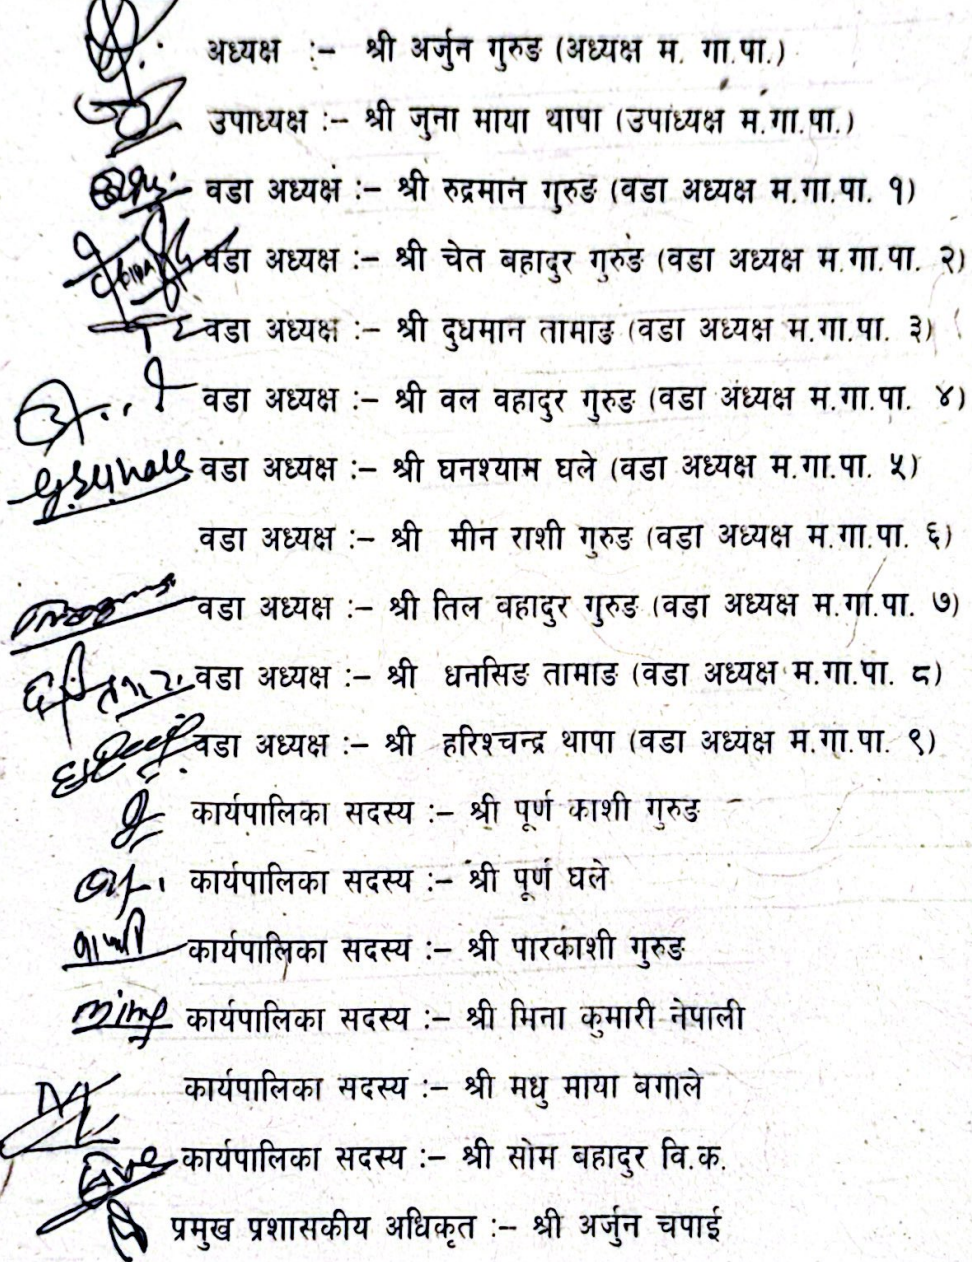 अध्यक्ष :– श्री अर्जुन गुरुङ (अध्यक्ष म. गा.पा.)
उपाध्यक्ष :– श्री जुना माया थापा (उपाध्यक्ष म.गा.पा.)
वडा अध्यक्ष :– श्री रुद्रमान गुरुङ (वडा अध्यक्ष म.गा.पा. १)
वडा अध्यक्ष :– श्री चेत बहादुर गुरुङ (वडा अध्यक्ष म.गा.पा. २)
वडा अध्यक्ष :– श्री दुधमान तामाङ (वडा अध्यक्ष म.गा.पा. ३)
वडा अध्यक्ष :– श्री वल वहादुर गुरुङ (वडा अध्यक्ष म.गा.पा. ४)
वडा अध्यक्ष :– श्री घनश्याम घले (वडा अध्यक्ष म.गा.पा. ५)
वडा अध्यक्ष :– श्री मीन राशी गुरुङ (वडा अध्यक्ष म.गा.पा. ६)
वडा अध्यक्ष :– श्री तिल वहादुर गुरुङ (वडा अध्यक्ष म.गा.पा. ७)
वडा अध्यक्ष :– श्री धनसिङ तामाङ (वडा अध्यक्ष म.गा.पा. ८)
वडा अध्यक्ष :– श्री हरिश्चन्द्र थापा (वडा अध्यक्ष म.गा.पा. ९)
कार्यपालिका सदस्य :– श्री पूर्ण काशी गुरुङ
कार्यपालिका सदस्य :– श्री पूर्ण घले
कार्यपालिका सदस्य :– श्री पारकाशी गुरुङ
कार्यपालिका सदस्य :– श्री मिना कुमारी नेपाली
कार्यपालिका सदस्य :– श्री मधु माया बगाले
कार्यपालिका सदस्य :– श्री सोम बहादुर वि.क.
प्रमुख प्रशासकीय अधिकृत :– श्री अर्जुन चपाई